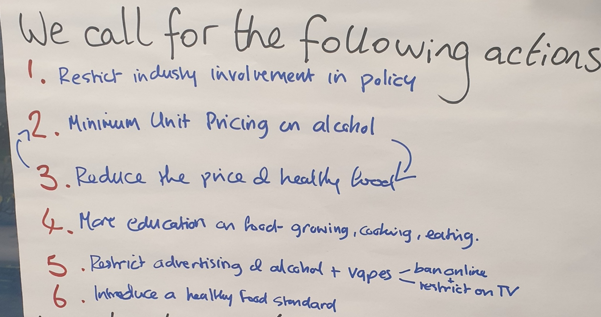 We call for the following actions
1. Restrict industry involvement in policy
2. Minimum Unit Pricing on alcohol
3. Reduce the price of healthy food
4. More education on food - growing, cooking, eating.
5. Restrict advertising of alcohol + vapes - ban online + restrict on TV
6. Introduce a healthy food standard